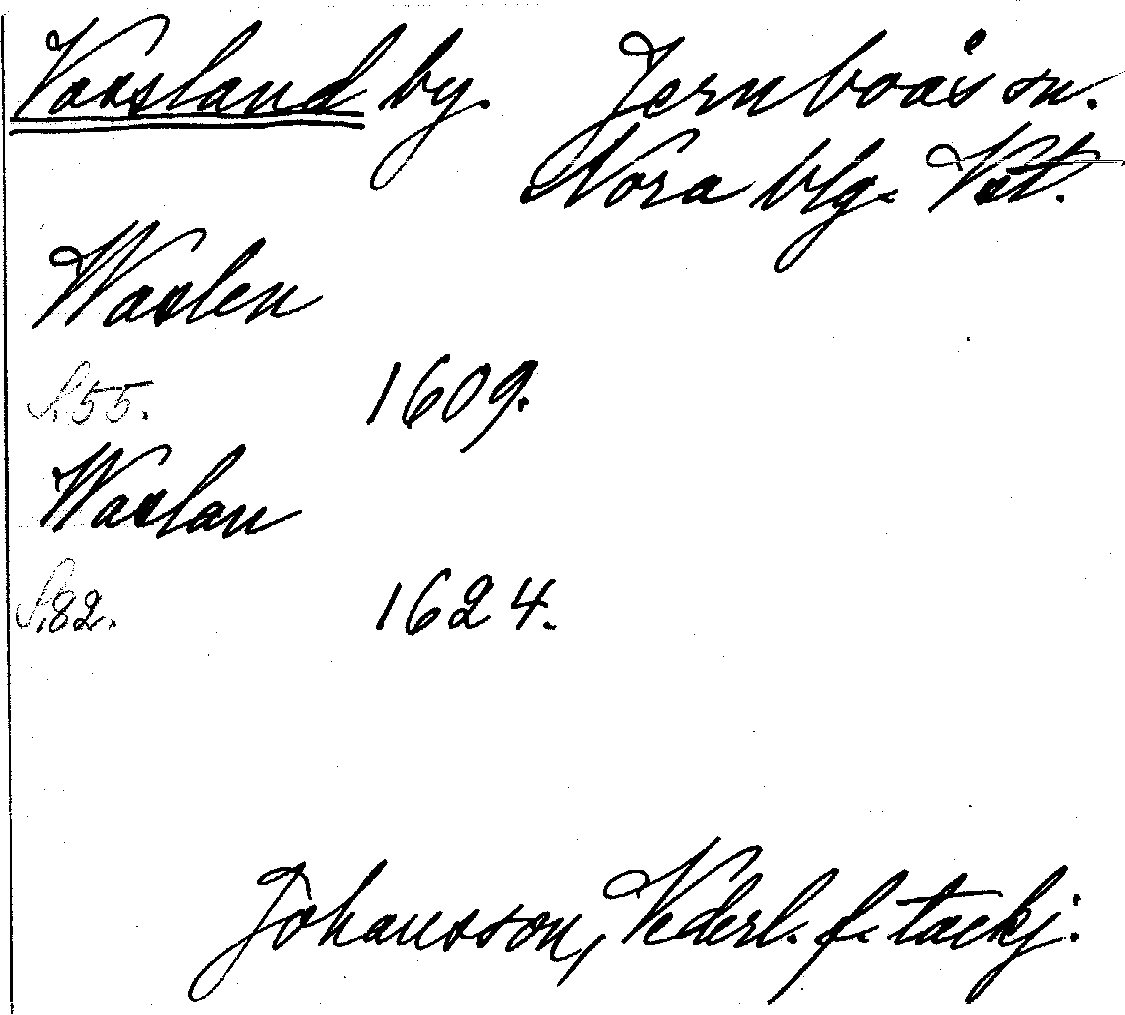 Vaasland by. Jernboås sn.
Nora blg. Vstm.
Waslen
S. 55. 1609.
Waslan
S. 82. 1624.
Johansson, Vederl. f. tackj.